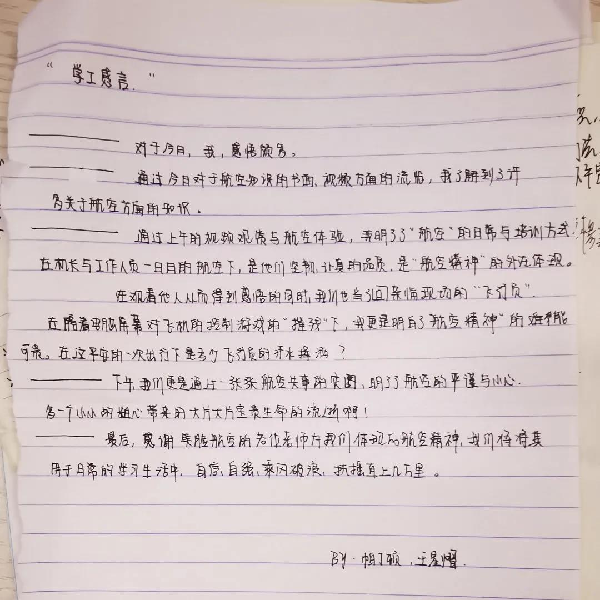 “学工感言.”
对于今日，我，感悟颇多。
通过今日对于航空知识的书面、视频方面的流览，我了解到了许
多关于航空方面的知识。
通过上午的视频观赏与航空体验，我明了了“航空”的日常与培训方式
在机长与工作人员一日日的航空下，是他们坚韧、认真的品质，是“航空精神”的外在体现。
在观看他人从而得到感悟的同时，我们也当了回亲临现场的“飞行员”.
在隔着电脑屏幕对飞机的控制游戏的“推移”下，我更是明白了“航空精神”的难能
可贵。在这平安的一次出行下是多少飞行员的汗水挥洒？
下午，我们更是通过一张张航空失事的案图，明了了航空的严谨与小心.
多一个小小的粗心带来的大片大片宝贵生命的流逝啊！
最后，感谢 航空的各位老师为我们体现的航空精神，我们将将其
用于日常的学习生活中，自信，自强，乘风破浪，扶摇直上九万里。
BY.